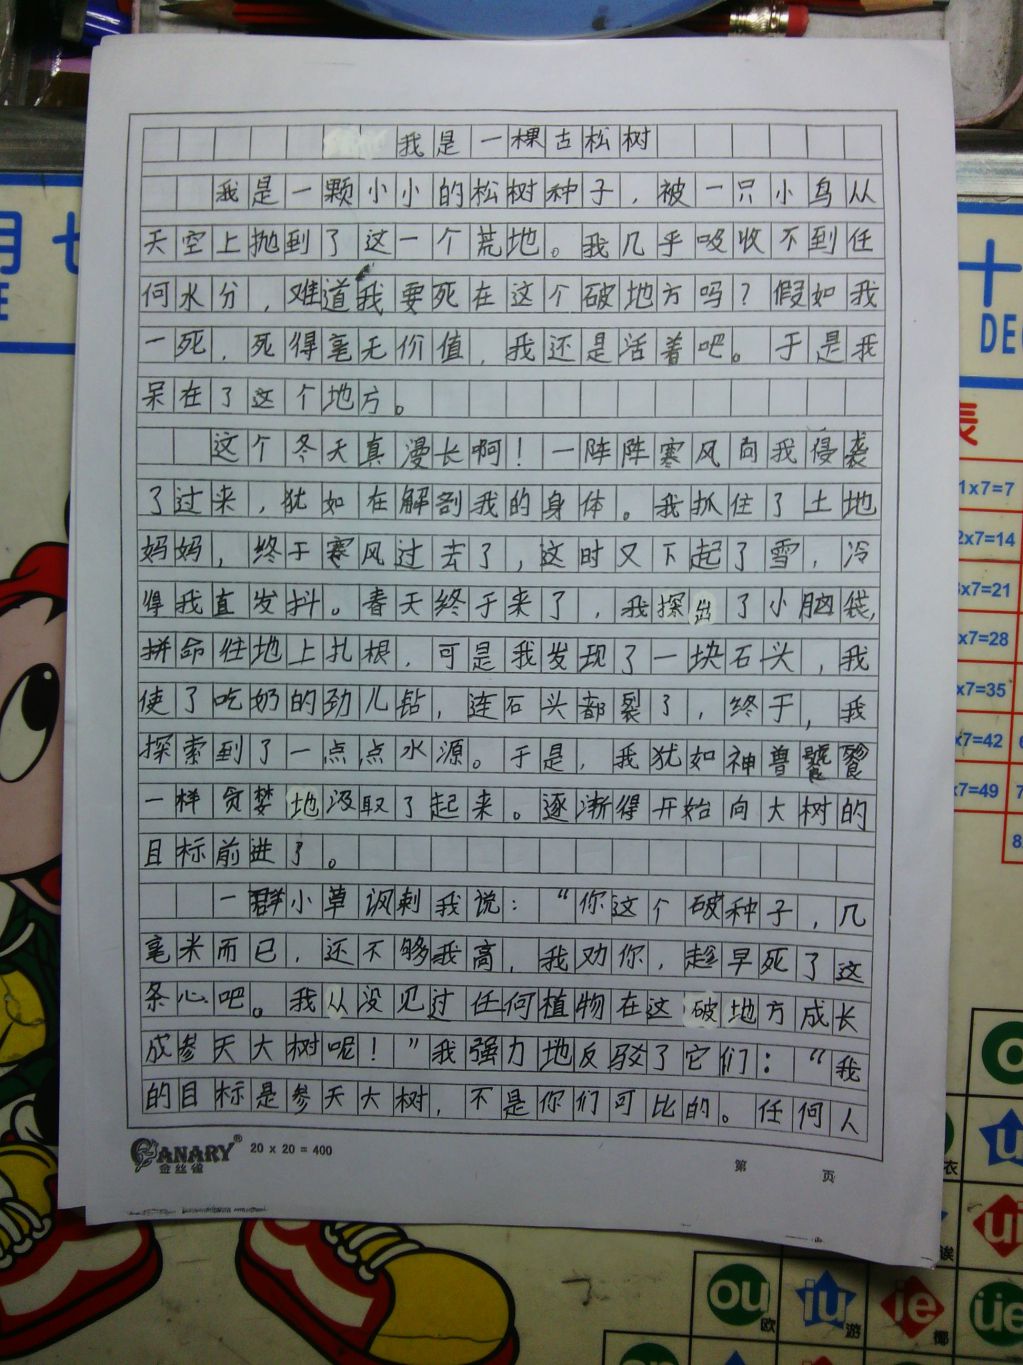 我是一棵古松树
我是一颗小小的松树种子，被一只小鸟从
天空上抛到了这一个荒地。我几乎吸收不到任
何水分，难道我要死在这个破地方吗？假如我
一死，死得毫无价值，我还是活着吧。于是我
呆在了这个地方。
这个冬天真漫长啊！一阵阵寒风向我侵袭
了过来，犹如在解剖我的身体。我抓住了土地
妈妈，终于寒风过去了，这时又下起了雪，冷
得我直发抖。春天终于来了，我探出了小脑袋，
拼命往地上扎根，可是我发现了一块石头，我
使了吃奶的劲儿钻，连石头都裂了，终于，我
探索到了一点点水源。于是，我犹如神兽饕餮
一样贪婪地汲取了起来。逐渐得开始向大树的
目标前进了。
一群小草讽刺我说：“你这个破种子，几
毫米而已，还不够我高，我劝你，趁早死了这
条心吧。我从没见过任何植物在这破地方成长
成参天大树呢！”我强力地反驳了它们：“我
的目标是参天大树，不是你们可比的。任何人
CANARY®
金丝雀
20 x 20 = 400
第 页
月 七
十
DEC
表
1x7=7
2x7=14
3x7=21
x7=28
x7=35
x7=42
x7=49
ou 欧
iu 游
ie 椰
üe
ui